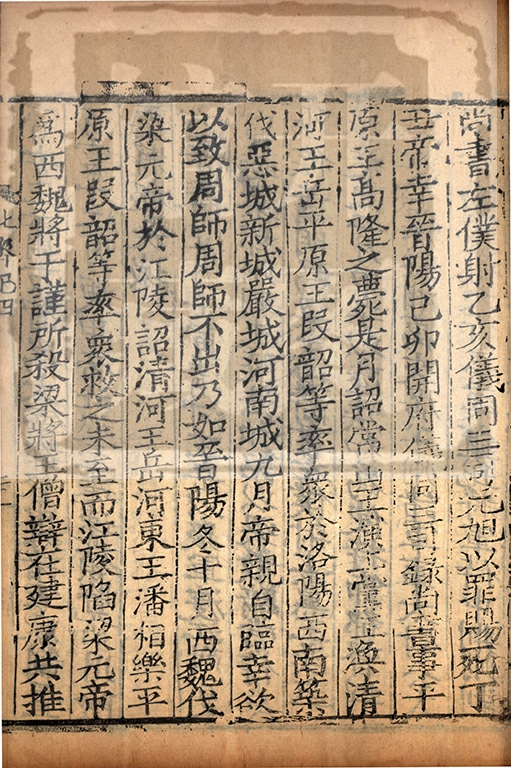 尚書左僕射乙亥儀同三司元旭以罪賜死丁
丑帝幸晉陽己卯開府儀同三司錄尚書事平
原王高隆之薨是月詔常山王演上黨王渙清
河王岳平原王段韶等率衆於洛陽西南築
伐惡城新城嚴城河南城九月帝親自臨幸欲
以致周師周師不出乃如晉陽冬十月西魏伐
梁元帝於江陵詔清河王岳河東王潘相樂平
原王段韶等率衆救之未至而江陵陷梁元帝
爲西魏將于謹所殺梁將王僧辯在建康共推